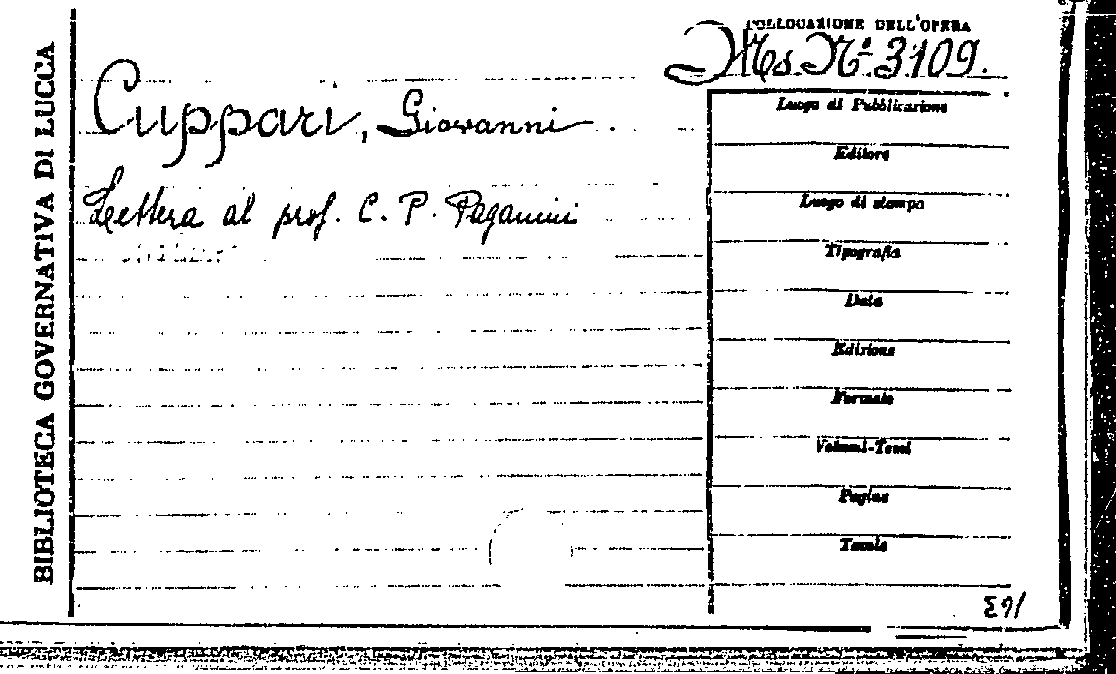 BIBLIOTECA GOVERNATIVA DI LUCCA
COLLOCAZIONE DELL'OPERA
Ms. Nº 3109.
Cuppari, Giovanni.
Lettera al prof. C. P. Paganini
Luogo di Pubblicazione
Editore
Luogo di stampa
Tipografia
Data
Edizione
Formato
Volumi-Tomi
Pagine
Tavole